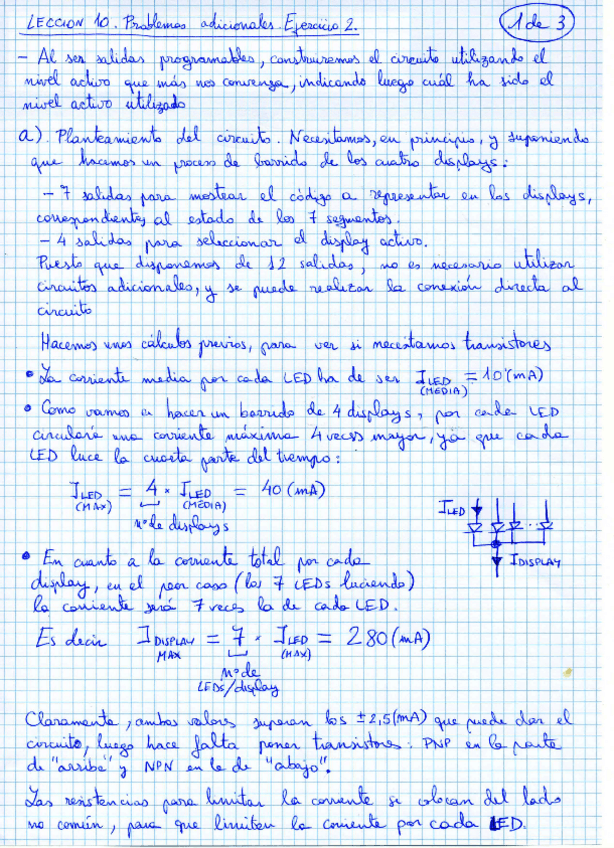 LECCION 10. Problemas adicionales. Ejercicio 2.
1 de 3
- Al ser salidas programables, construiremos el circuito utilizando el
nivel activo que más nos convenga, indicando luego cuál ha sido el
nivel activo utilizado
a). Planteamiento del circuito. Necesitamos, en principio, y suponiendo
que hacemos un proceso de barrido de los cuatro displays:
- 7 salidas para mostrar el código a representar en los displays,
correspondientes al estado de los 7 segmentos.
- 4 salidas para seleccionar el display activo.
Puesto que disponemos de 12 salidas, no es necesario utilizar
circuitos adicionales, y se puede realizar la conexión directa al
circuito
Hacemos unos cálculos previos, para ver si necesitamos transistores
• La corriente media por cada LED ha de ser I LED (MEDIA) = 10 (mA)
• Como vamos a hacer un barrido de 4 displays, por cada LED
circulará una corriente máxima 4 veces mayor, ya que cada
LED luce la cuarta parte del tiempo:
I LED (MAX) = 4 × I LED (MEDIA) = 40 (mA)
nº de displays
I LED
I DISPLAY
• En cuanto a la corriente total por cada
display, en el peor caso (los 7 LEDs luciendo)
la corriente será 7 veces la de cada LED.
Es decir I DISPLAY MAX = 7 · I LED (MAX) = 280 (mA)
nº de
LEDs/display
Claramente, ambos valores superan los ±2,5 (mA) que puede dar el
circuito, luego hace falta poner transistores: PNP en la parte
de "arriba" y NPN en la de "abajo".
Las resistencias para limitar la corriente se colocan del lado
no común, para que limiten la corriente por cada LED.